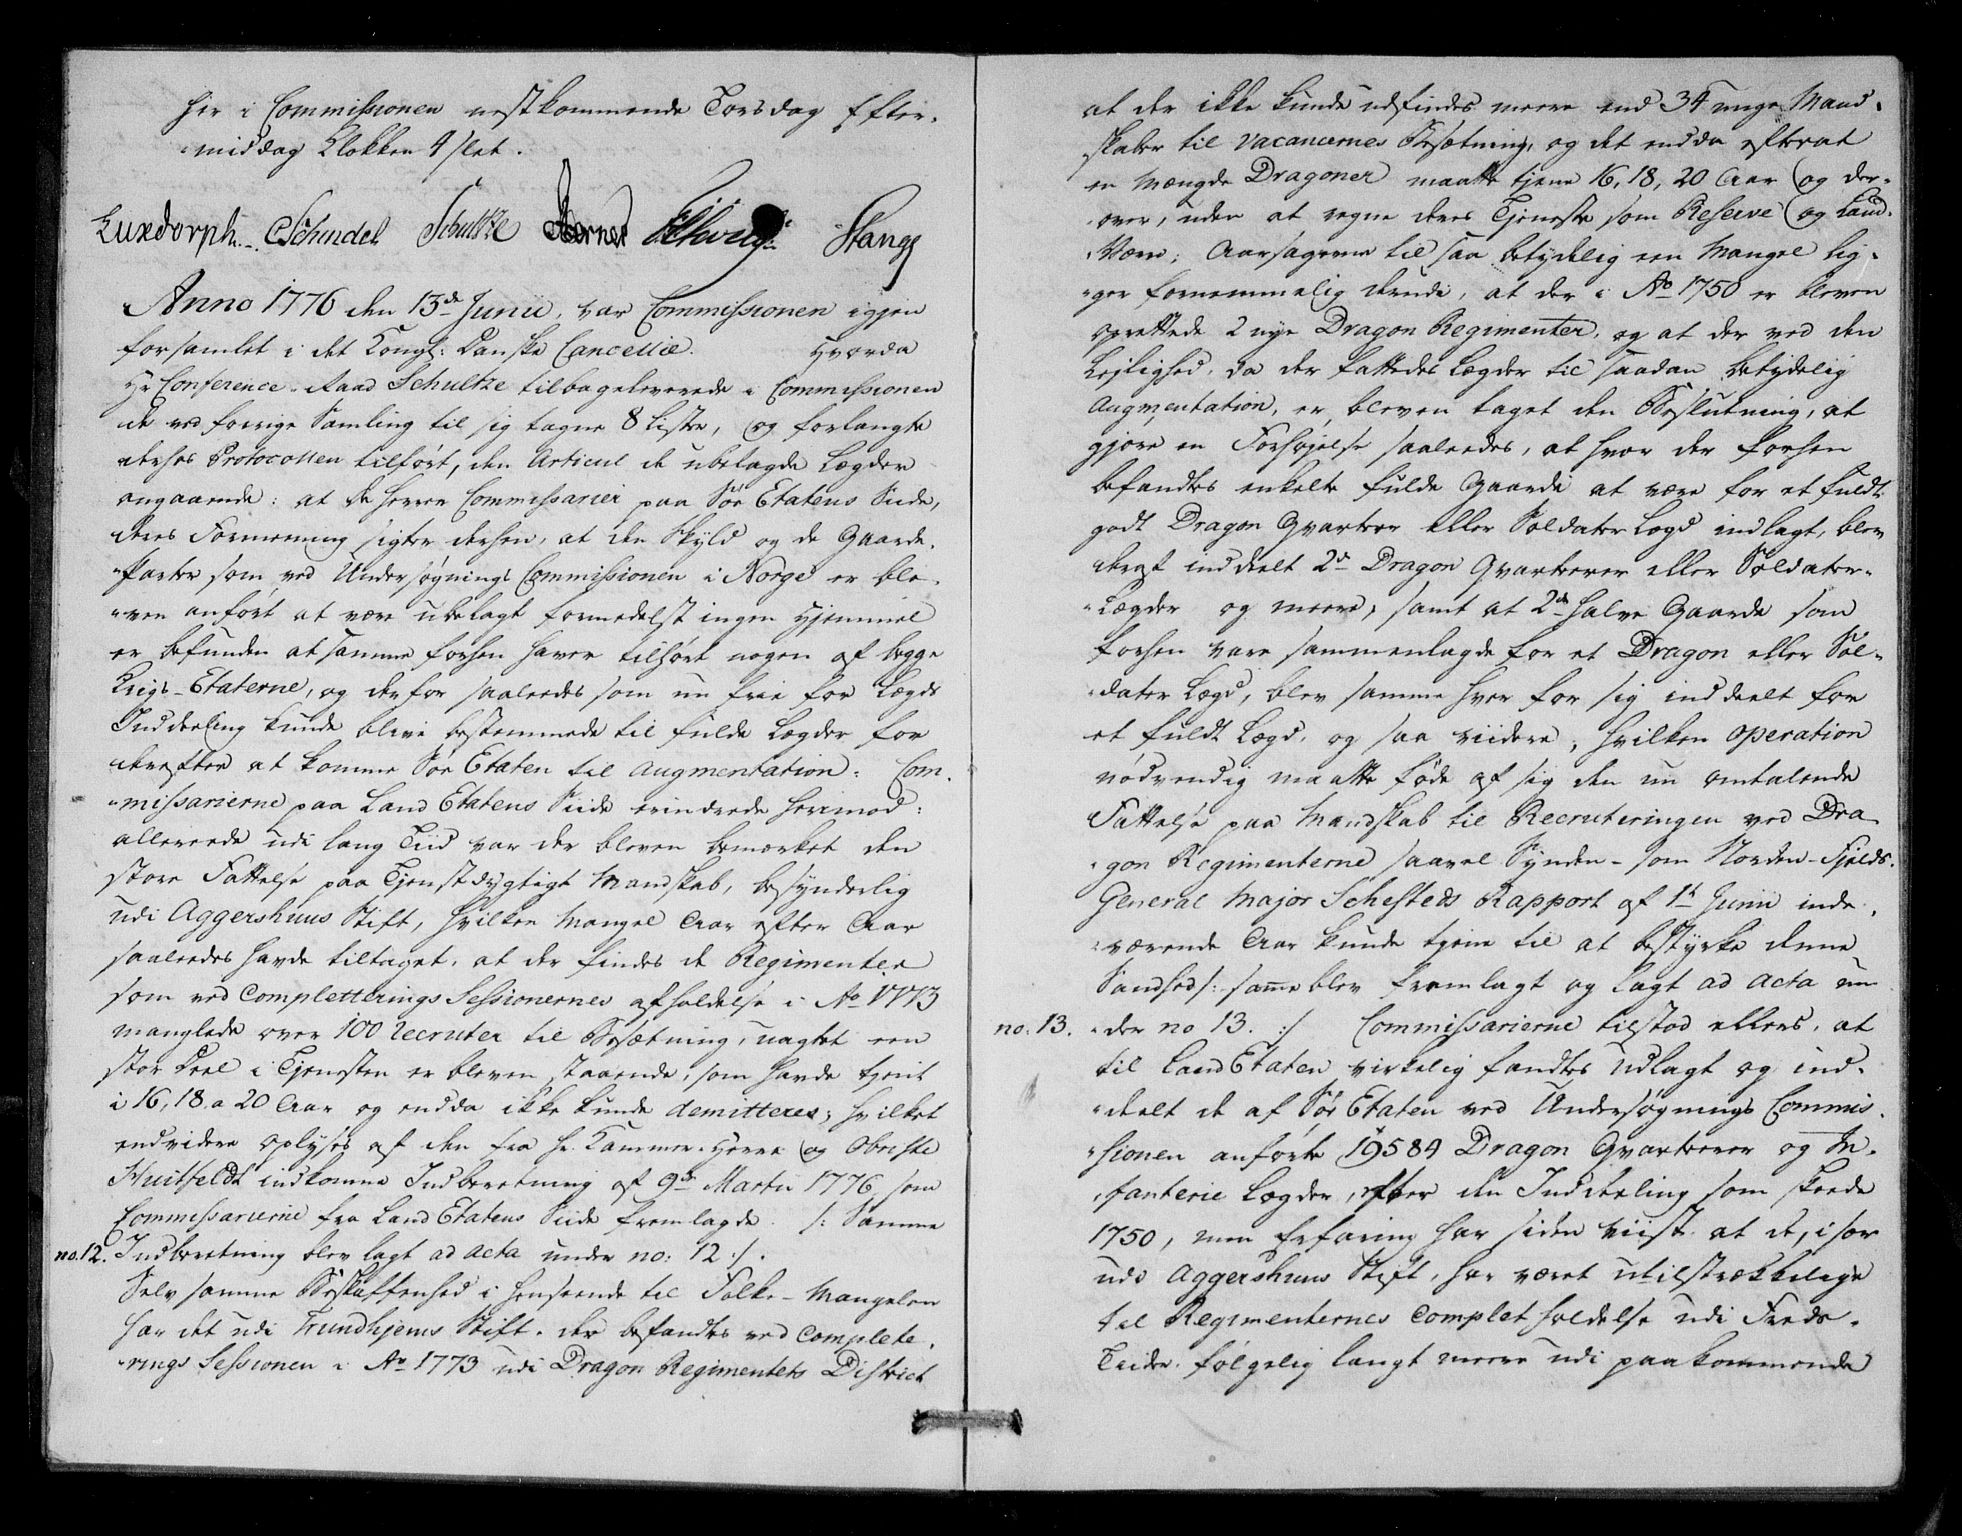 her i Commissionen nestkommende Torsdag Efter-
middag Klokken 4 slet.
Luxdorph. Schindel Schultze Stange
Anno 1776 den 13de Junii, var Commissionen igjen
forsamlet i det Kongl: Danske Cancellie. Hvorda
Hr Conference-Raad Schultze tilbageleverede i Commissionen
de ved forrige Samling til sig tagne 8 Lister, og forlangte
derhos Protocollen tilført, den Articul de ubelagde Lægder
angaaende: at de Herrer Commissarier paa Søe Etatens Siide,
deres Formeening sigter derhen, at den Skyld og de Gaarde-
Parter som ved Undersøgnings Commissionen i Norge er ble-
ven anført at være ubelagt formedelst ingen Hjemmel
er befunden at samme forhen haver tilhørt nogen af begge
Krigs-Etaterne, og derfor saaledes som nu frie for Lægds
Inddeeling kunde blive bestemmede til fulde Lægder for
derefter at komme Søe Etaten til Augmentation: Com-
missarierne paa Land Etatens Siide erindrede herimod:
allereede udi lang Tiid var der bleven bemærket den
store Fattelse paa Tjenstdygtigt Mandskab, besynderlig
udi Aggershuus Stift, hvilken Mangel Aar efter Aar
saaledes havde tiltaget, at der findes de Regimenter
som ved Completterings Sessionernes afholdelse i Ao 1773
manglede over 100 recruter til Besætning, uagtet een
stor Deel i Tjensten er bleven staaende, som havde tjent
i 16, 18 a 20 Aar og endda ikke kunde demitteres; hvilket
endvidere oplyses af den fra Hr. Kammer-Herre og Obriste
Huitfeldt indkomne Indberetning af 9de Martii 1776 som
Commissarierne fra Land Etatens Siide fremlagde. /: Samme
no. 12. Indberetning blev lagt ad acta under no: 12 :/.
Selv samme Beskaffenhed i Henseende til Folke-Mangelen
har det udi Trundhjems Stift. der befandtes ved Complete-
rings Sessionen i Ao 1773 udi Dragon Regimentets District
at der ikke kunde udfindes meere end 34 unge Mand-
skaber til Vacancernes Besætning, og det endda efterat
en Mængde Dragoner maatte tjene 16, 18, 20 Aar og der-
over, uden at regne deres Tjeneste som Reserve og Land-
Værn; Aarsagerne til saa betydelig een Mangel lig-
ger fornemmelig derudi, at der i Ao 1750 er bleven
oprettede 2 nye Dragon Regimenter, og at der ved den
Lejlighed, da der fattedes Lægder til saadan betydelig
Augmentation, er bleven taget den Beslutning, at
gjøre en Forhøjelse saaledes, at hvor der forhen
befandtes enkelte fulde Gaarde at være for et fuldt
godt Dragon Qvarteer eller Soldater Lægd indlagt, blev
deraf inddeelt 2de Dragon Qvarterer eller Soldater-
Lægder og meere, samt at 2de halve Gaarde som
forhen vare sammenlagde for et Dragon eller Sol-
dater Lægd, blev samme hver for sig inddeelt for
et fuldt Lægd, og saa viidere, hvilken Operation
nødvendig maatte føde af sig den nu omtalende
Fattelse paa Mandskab til Recruteringen ved Dra-
gon Regimenterne saavel Synden- som Norden-Fjelds.
General Major Schesteds Rapport af 1te Junii inde-
værende Aar kunde tjene til at bestyrke denne
Sandhed /: samme blev fremlagt og lagt ad acta un
no. 13. der no 13. :/ Commissarierne tilstod ellers, at
til Land Etaten virkelig fandtes Udlagt og ind-
deelt de af Søe Etaten ved Undersøgnings Commis-
sionen anførte 19584 Dragon Qvarterer og In-
fanterie Lægder, efter den Inddeeling som skeede
1750, men Erfaring har siden viist at de, især
udi Aggershuus Stift, har været utilstrækkelige
til Regimenternes Complet holdelse udi Freds-
Tiider. følgelig langt meere udi paakommende